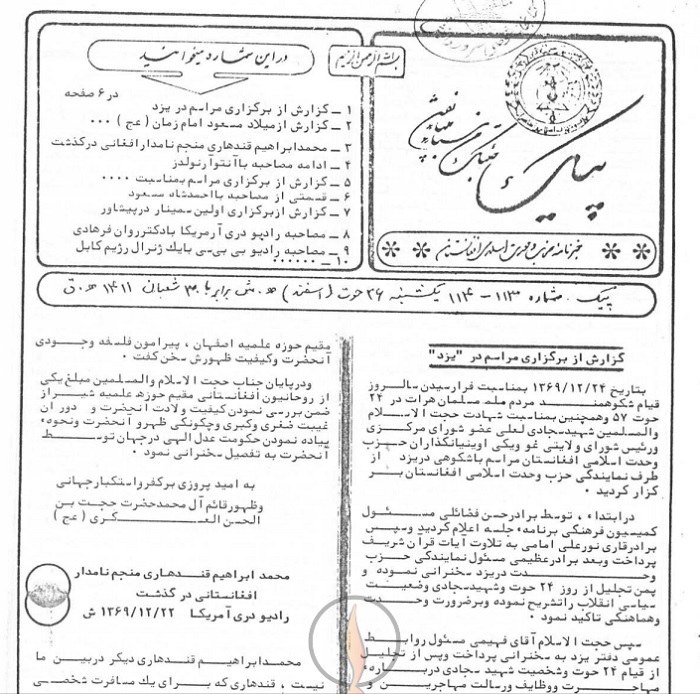 بسم الله الرحمن الرحیم
در این شماره میخوانید
در ۶ صفحه
۱ ــ گزارش از برگزاری مراسم در یزد
۲ ــ گزارش ازمیلاد مسعود امام زمان ( عج ) ۰۰۰
۳ ــ محمدابراهیم قندهاری منجم نامدار افغانی درگذشت
۴ ــ ادامه مصاحبه باآنتوآرنولدز
۵ ــ گزارش از برگزاری مراسم بمناسبت ۰۰۰۰
۶ ــ قسمتی از مصاحبه بااحمدشاه مسعود
۷ ــ گزارش ازبرگزاری اولین سمینار درپیشاور
۸ ــ مصاحبه رادیو دری آرمریکا بادکترروان فرهادی
۹ ــ مصاحبه رادیو بی بی سی بایك ژنرال رژیم کابل
۱۰ ــ ۰۰۰۰۰۰۰
پیک
خبرنامه حزب وحدت اسلامی افغانستان
پیک شماره ۱۱۳ - ۱۱۴ یکشنبه ۲۶ حوت ( اسفند ) ه‍.ش برابر با ۳۰ شعبان ۱۴۱۱ ه‍.ق
گزارش از برگزاری مراسم در "یزد"
بتاریخ ۱۳۶۹/۱۲/۲۴ بمناسبت فرارسیدن سالروز
قیام شکوهمند مردم ملمه مسلمان هرات در ۲۴
حوت ۵۷ وهمچنین بمناسبت شهادت حجت الاسلام
والمسلمین شهیدسجادی لعلی عضو شورای مرکزی
ورئیس شورای ولایتی غو ویکی اوبنیانگذاران حزب
وحدت اسلامی افغانستان مراسم باشکوهی دریزد از
طرف نمایندگی حزب وحدت اسلامی افغانستان بر
گزار گردید ۰
درابتداء ، توسط برادرحسن فضائلی مسئول
کمیسیون فرهنگی برنامهء جلسه اعلام گردید وسپس
برادرقاری نورعلی امامی به تلاوت آیات قرآن شریف
پرداخت وبعد برادرعظیمی مسئول نمایندگی حزب
وحدت دریزد سخنرانی نموده و
پمن تجلیل از روز ۲۴ حوت وشهیدسجادی وضعیت
سیاسی انقلاب راتشریح نموده وبرضرورت وحدت
وهماهنگی تاکید نمود ۰
سپس حجت الاسلام آقای فهیمی مسئول روابط
عمومی دفتر یزد به سخنرانی پرداخت وپس از تجلیل
از قیام ۲۴ حوت وشخصیت شهید سجادی درباره
مهاجرت ووظایف ورسالت مهاجرین و
مقیم حوزه علمیه اصفهان ، پیرامون فلسفه وجودی
آنحضرت وکیفیت ظهورش سخن گفت ۰
ودرپایان جناب حجت الاسلام والمسلمین مبلغ یکی
از روحانیون افغانستانی مقیم حوزه علمیه شیراز
ضمن بررسی نمودن کیفیت ولادت آنحضرت و دوران
غیبت صغری وکبری وچگونگی ظهرو آنحضرت ونحوهء
پیاده نمودن حکومت عدل الهی درجهان توسط
آنحضرت به تفصیل سخنرانی نمود ۰
به امید پروزی برکفر واستکبارجهانی
وظهورقائم آل محمدحضرت حجت بن
الحسن العسکری ( عج )
محمد ابراهیم قندهاری منجم نامدار
افغانستانی در گذشت
رادیو دری آمریکا ۱۳۶۹/۱۲/۲۲ ش
محمدابراهیم قندهاری دیگر دربین ما
نیست ، قندهاری که برای یك مسافرت شخصی